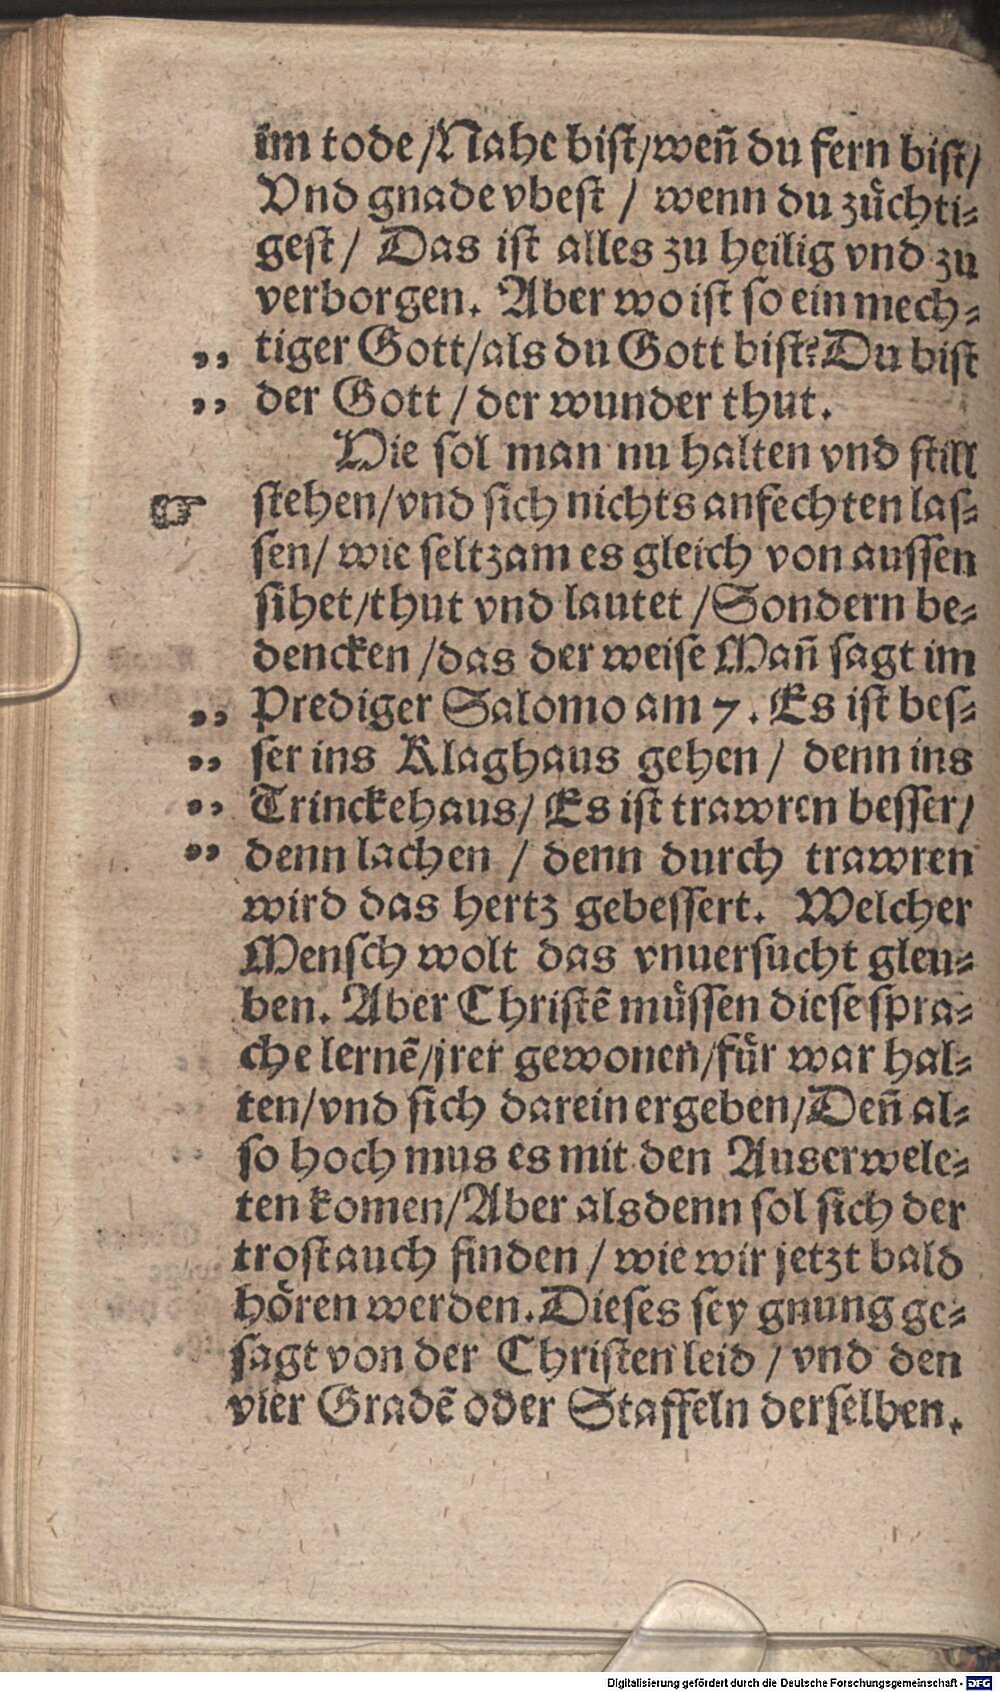 im tode /Nahe bist/weñ du fern bist/
Vnd gnade vbest / wenn du zuͤchti⸗
gest / Das ist alles zu heilig vnd zu
verborgen. Aber wo ist so ein mech⸗
„ tiger Gott/als du Gott bist? Du bist
„ der Gott / der wunder thut.
Hie sol man nu halten vnd still
☞ stehen/vnd sich nichts anfechten las⸗
sen/ wie seltzam es gleich von aussen
sihet/thut vnd lautet /Sondern be⸗
dencken /das der weise Mañ sagt im
„ Prediger Salomo am 7. Es ist bes⸗
„ ser ins Klaghaus gehen / denn ins
„ Trinckehaus/ Es ist trawren besser/
„ denn lachen / denn durch trawren
wird das hertz gebessert. Welcher
Mensch wolt das vnuersucht gleu⸗
ben. Aber Christẽ muͤssen diese spra⸗
che lernẽ/jrer gewonen/fuͤr war hal⸗
ten/vnd sich darein ergeben/Deñ al⸗
so hoch mus es mit den Auserwele⸗
ten komen/Aber alsdenn sol sich der
trost auch finden / wie wir jetzt bald
hoͤren werden. Dieses sey gnung ge⸗
sagt von der Christen leid / vnd den
vier Gradẽ oder Staffeln derselben.
Digitalisierung gefördert durch die Deutsche Forschungsgemeinschaft - DFG